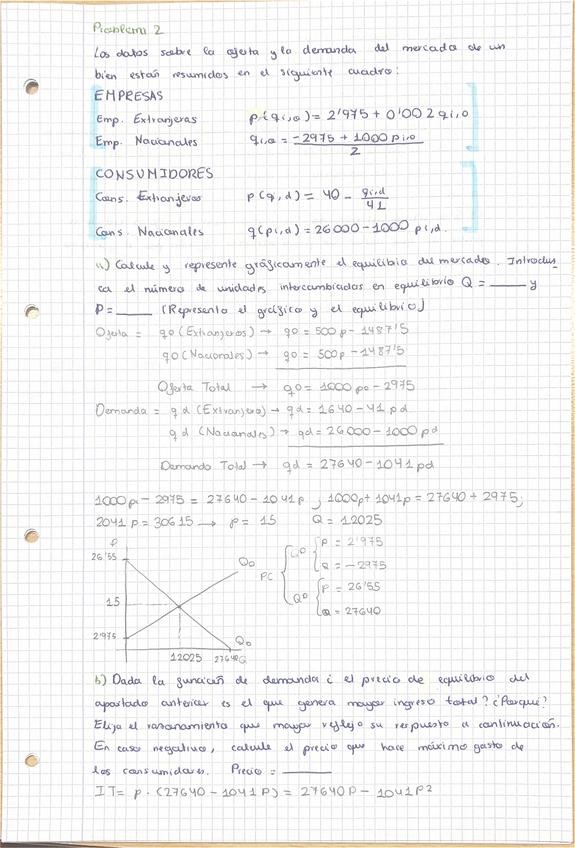 Problema 2
Los datos sobre la oferta y la demanda del mercado de un
bien están resumidos en el siguiente cuadro:
EMPRESAS
Emp. Extranjeras p(qi,o) = 2'975 + 0'002 qi,o
Emp. Nacionales qi,o = (-2975 + 1000 pi,o) / 2
CONSUMIDORES
Cons. Extranjeros p(q,d) = 40 - qi,d / 41
Cons. Nacionales q(pi,d) = 26000 - 1000 pi,d.
a) Calcule y represente gráficamente el equilibrio del mercado. Introduz
ca el número de unidades intercambiadas en equilibrio Q = ____ y
P = ____ (Represento el gráfico y el equilibrio)
Oferta = qo (Extranjeros) → qo = 500p - 1487'5
qo (Nacionales) → qo = 500p - 1487'5
Oferta Total → qo = 1000 po - 2975
Demanda = qd (Extranjero) → qd = 1640 - 41 pd
qd (Nacionales) → qd = 26000 - 1000 pd
Demanda Total → qd = 27640 - 1041 pd
1000p - 2975 = 27640 - 1041p ; 1000p + 1041p = 27640 + 2975;
2041 p = 30615 → p = 15 Q = 12025
P
26'55
15
2'975
Qo
QD
12025 27640 Q
PC
QO P = 2'975
Q = -2975
QD P = 26'55
Q = 27640
b) Dada la función de demanda ¿ el precio de equilibrio del
apartado anterior es el que genera mayor ingreso total? ¿Porqué?
Elija el razonamiento que mayor refleje su respuesta a continuación.
En caso negativo, calcule el precio que hace máximo gasto de
los consumidores. Precio = ____
IT = p · (27640 - 1041P) = 27640P - 1041P²